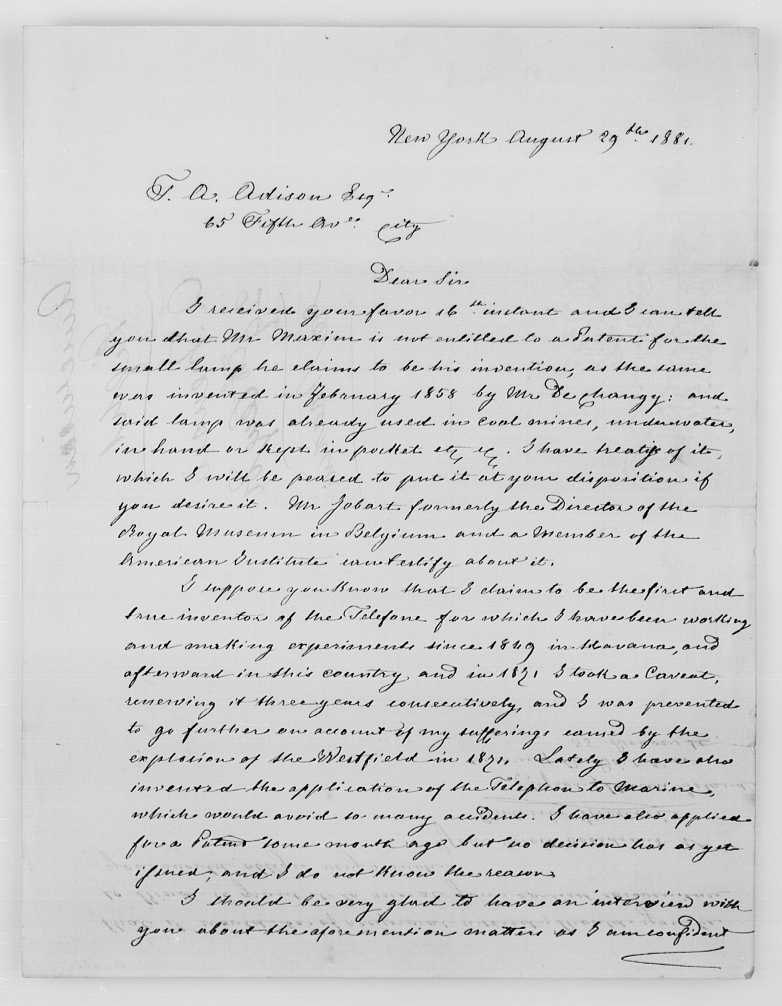 New York August 29th. 1881.
T. A. Adison Esqr.
65 Fifth Avee. City
Dear Sir
I received your favor 16th instant and I can tell
you that Mr Maxim is not entitled to a Patent for the
small lamp he claims to be his invention, as the same
was invented in February 1858 by Mr De Changy: and
said lamp was already used in coal mines, under water,
in hand or kept in pocket etc etc. I have treaty of it,
which I will be peased to put it at your disposition if
you desire it. Mr Jobart formerly the Director of the
Royal Museum in Belgium and a Member of the
American Institute can testify about it.
I suppose you know that I claim to be the first and
true inventor of the Telefone for which I have been working
and making experiments since 1849 in Havana, and
afterward in this country and in 1871 I took a Caveat,
renewing it three years consecutively, and I was prevented
to go further on account of my sufferings caused by the
explosion of the Westfield in 1871. Lately I have also
invented the application of the Telephon to Marine,
which would avoid so many accidents. I have also applied
for a Patent some month ago but no decision has as yet
issued, and I do not know the reason
I should be very glad to have an interview with
you about the aforemention matters as I am confident